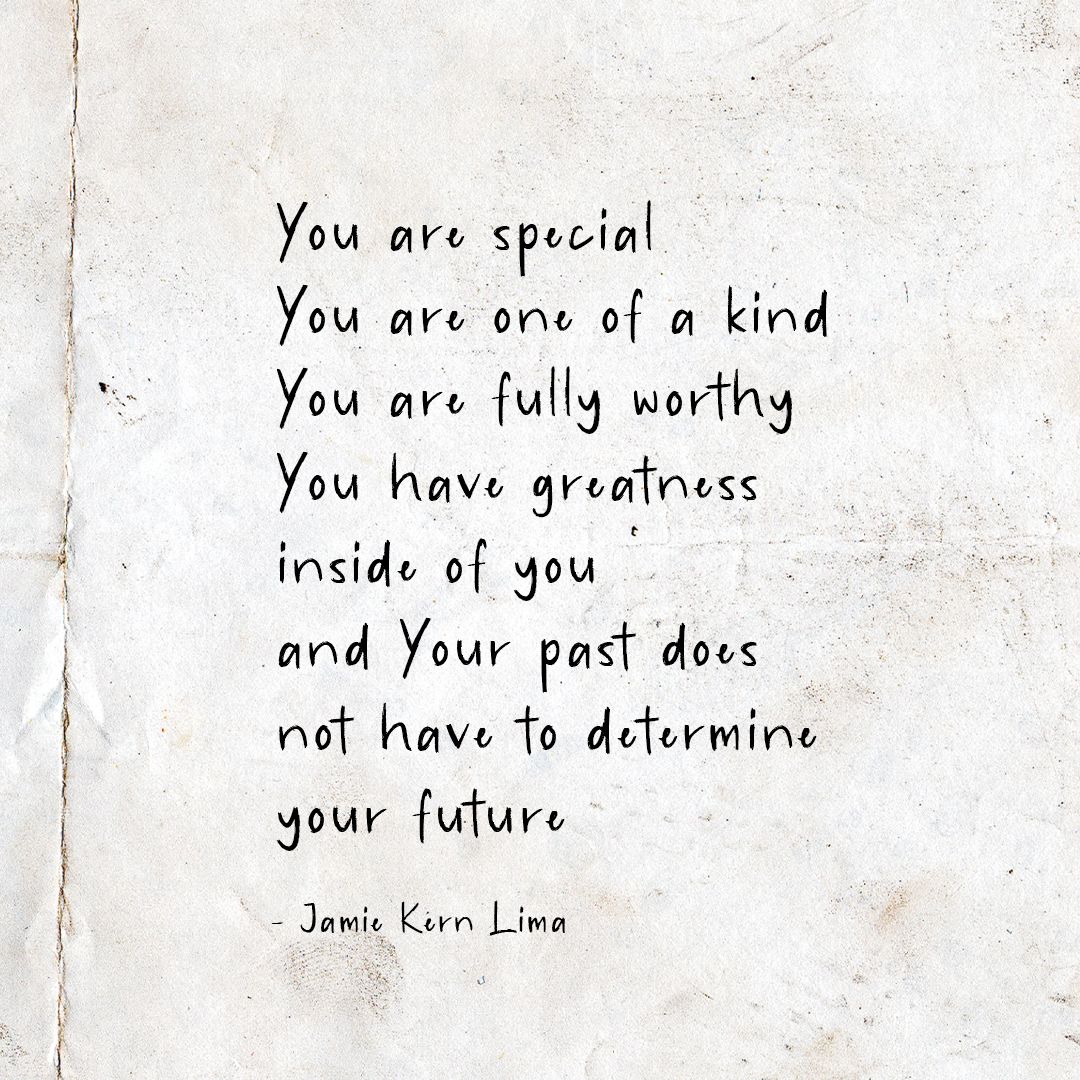 You are special
You are one of a kind
You are fully worthy
You have greatness
inside of you
and Your past does
not have to determine
your future
- Jamie Kern Lima